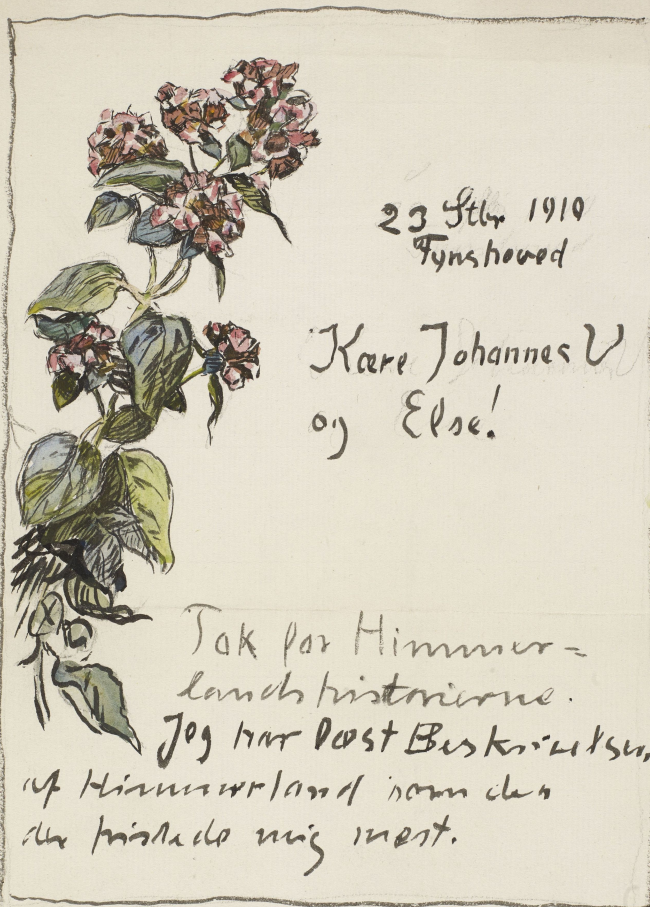 23 Stbr 1910
Fynshoved
Kære Johannes V
og Else!
Tak for Himmer=
landshistorierne.
Jeg har læst Beskrivelsen
af Himmerland som den
der fristede mig mest.